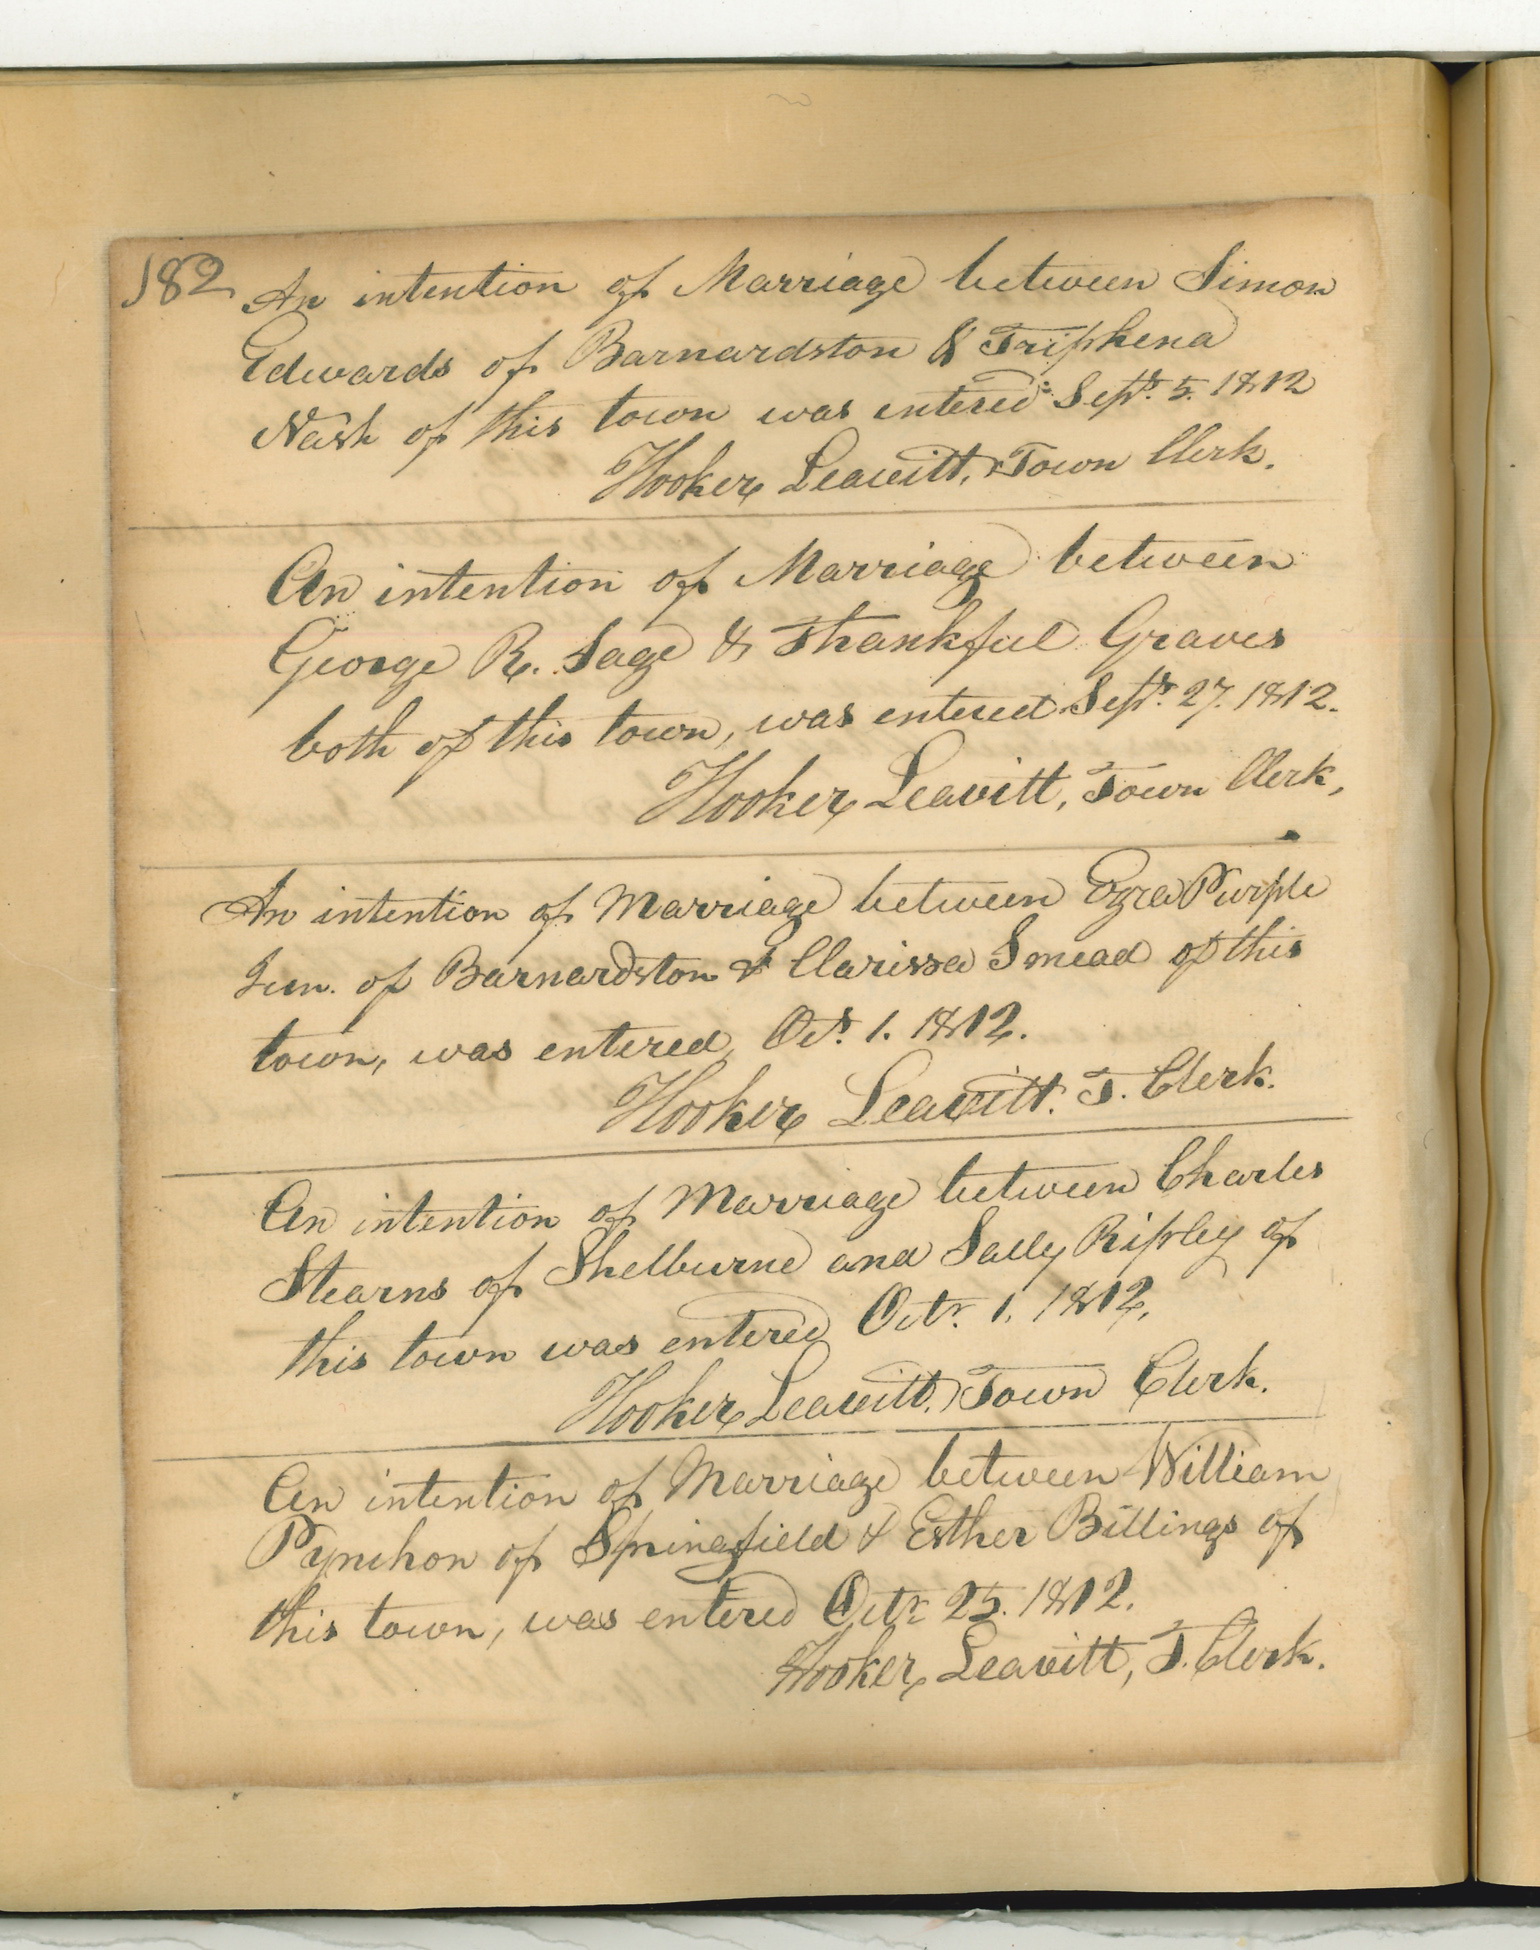 182
An intention of Marriage between Simon
Edwards of Barnardston & Triphena
Nash of this town was entered Sept. 5. 1812
Hooker Leavitt, Town Clerk.
An intention of Marriage between
George R. Sage & Thankful Graves
both of this town, was entered Sept. 27. 1812.
Hooker Leavitt, Town Clerk,
An intention of Marriage between Ezra Purple
Jun. of Barnardston & Clarissa Smead of this
town, was entered, Oct. 1. 1812.
Hooker Leavitt. T. Clerk.
An intention of Marriage between Charles
Stearns of Shelburne and Sally Ripley of
this town was entered Octr. 1. 1812.
Hooker Leavitt, Town Clerk.
An intention of Marriage between William
Pynchon of Springfield & Esther Billings of
this town, was entered Octr. 25. 1812.
Hooker Leavitt, T. Clerk.